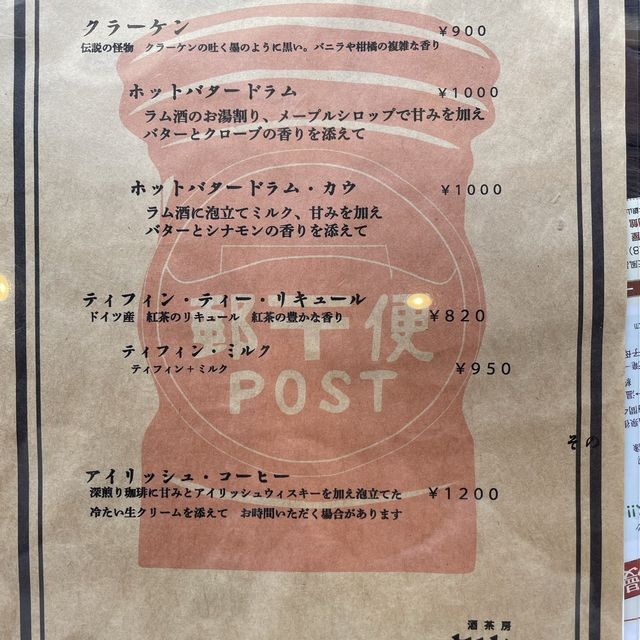 クラーケン ￥900
伝説の怪物 クラーケンの吐く墨のように黒い。バニラや柑橘の複雑な香り
ホットバタードラム ￥1000
ラム酒のお湯割り、メープルシロップで甘みを加え
バターとクローブの香りを添えて
ホットバタードラム・カウ ￥1000
ラム酒に泡立てミルク、甘みを加え
バターとシナモンの香りを添えて
ティフィン・ティー・リキュール ￥820
ドイツ産 紅茶のリキュール 紅茶の豊かな香り
郵〒便
ティフィン・ミルク ￥950
ティフィン+ミルク
POST
その
アイリッシュ・コーヒー ￥1200
深煎り珈琲に甘みとアイリッシュウィスキーを加え泡立てた
冷たい生クリームを添えて お時間いただく場合があります
酒茶房